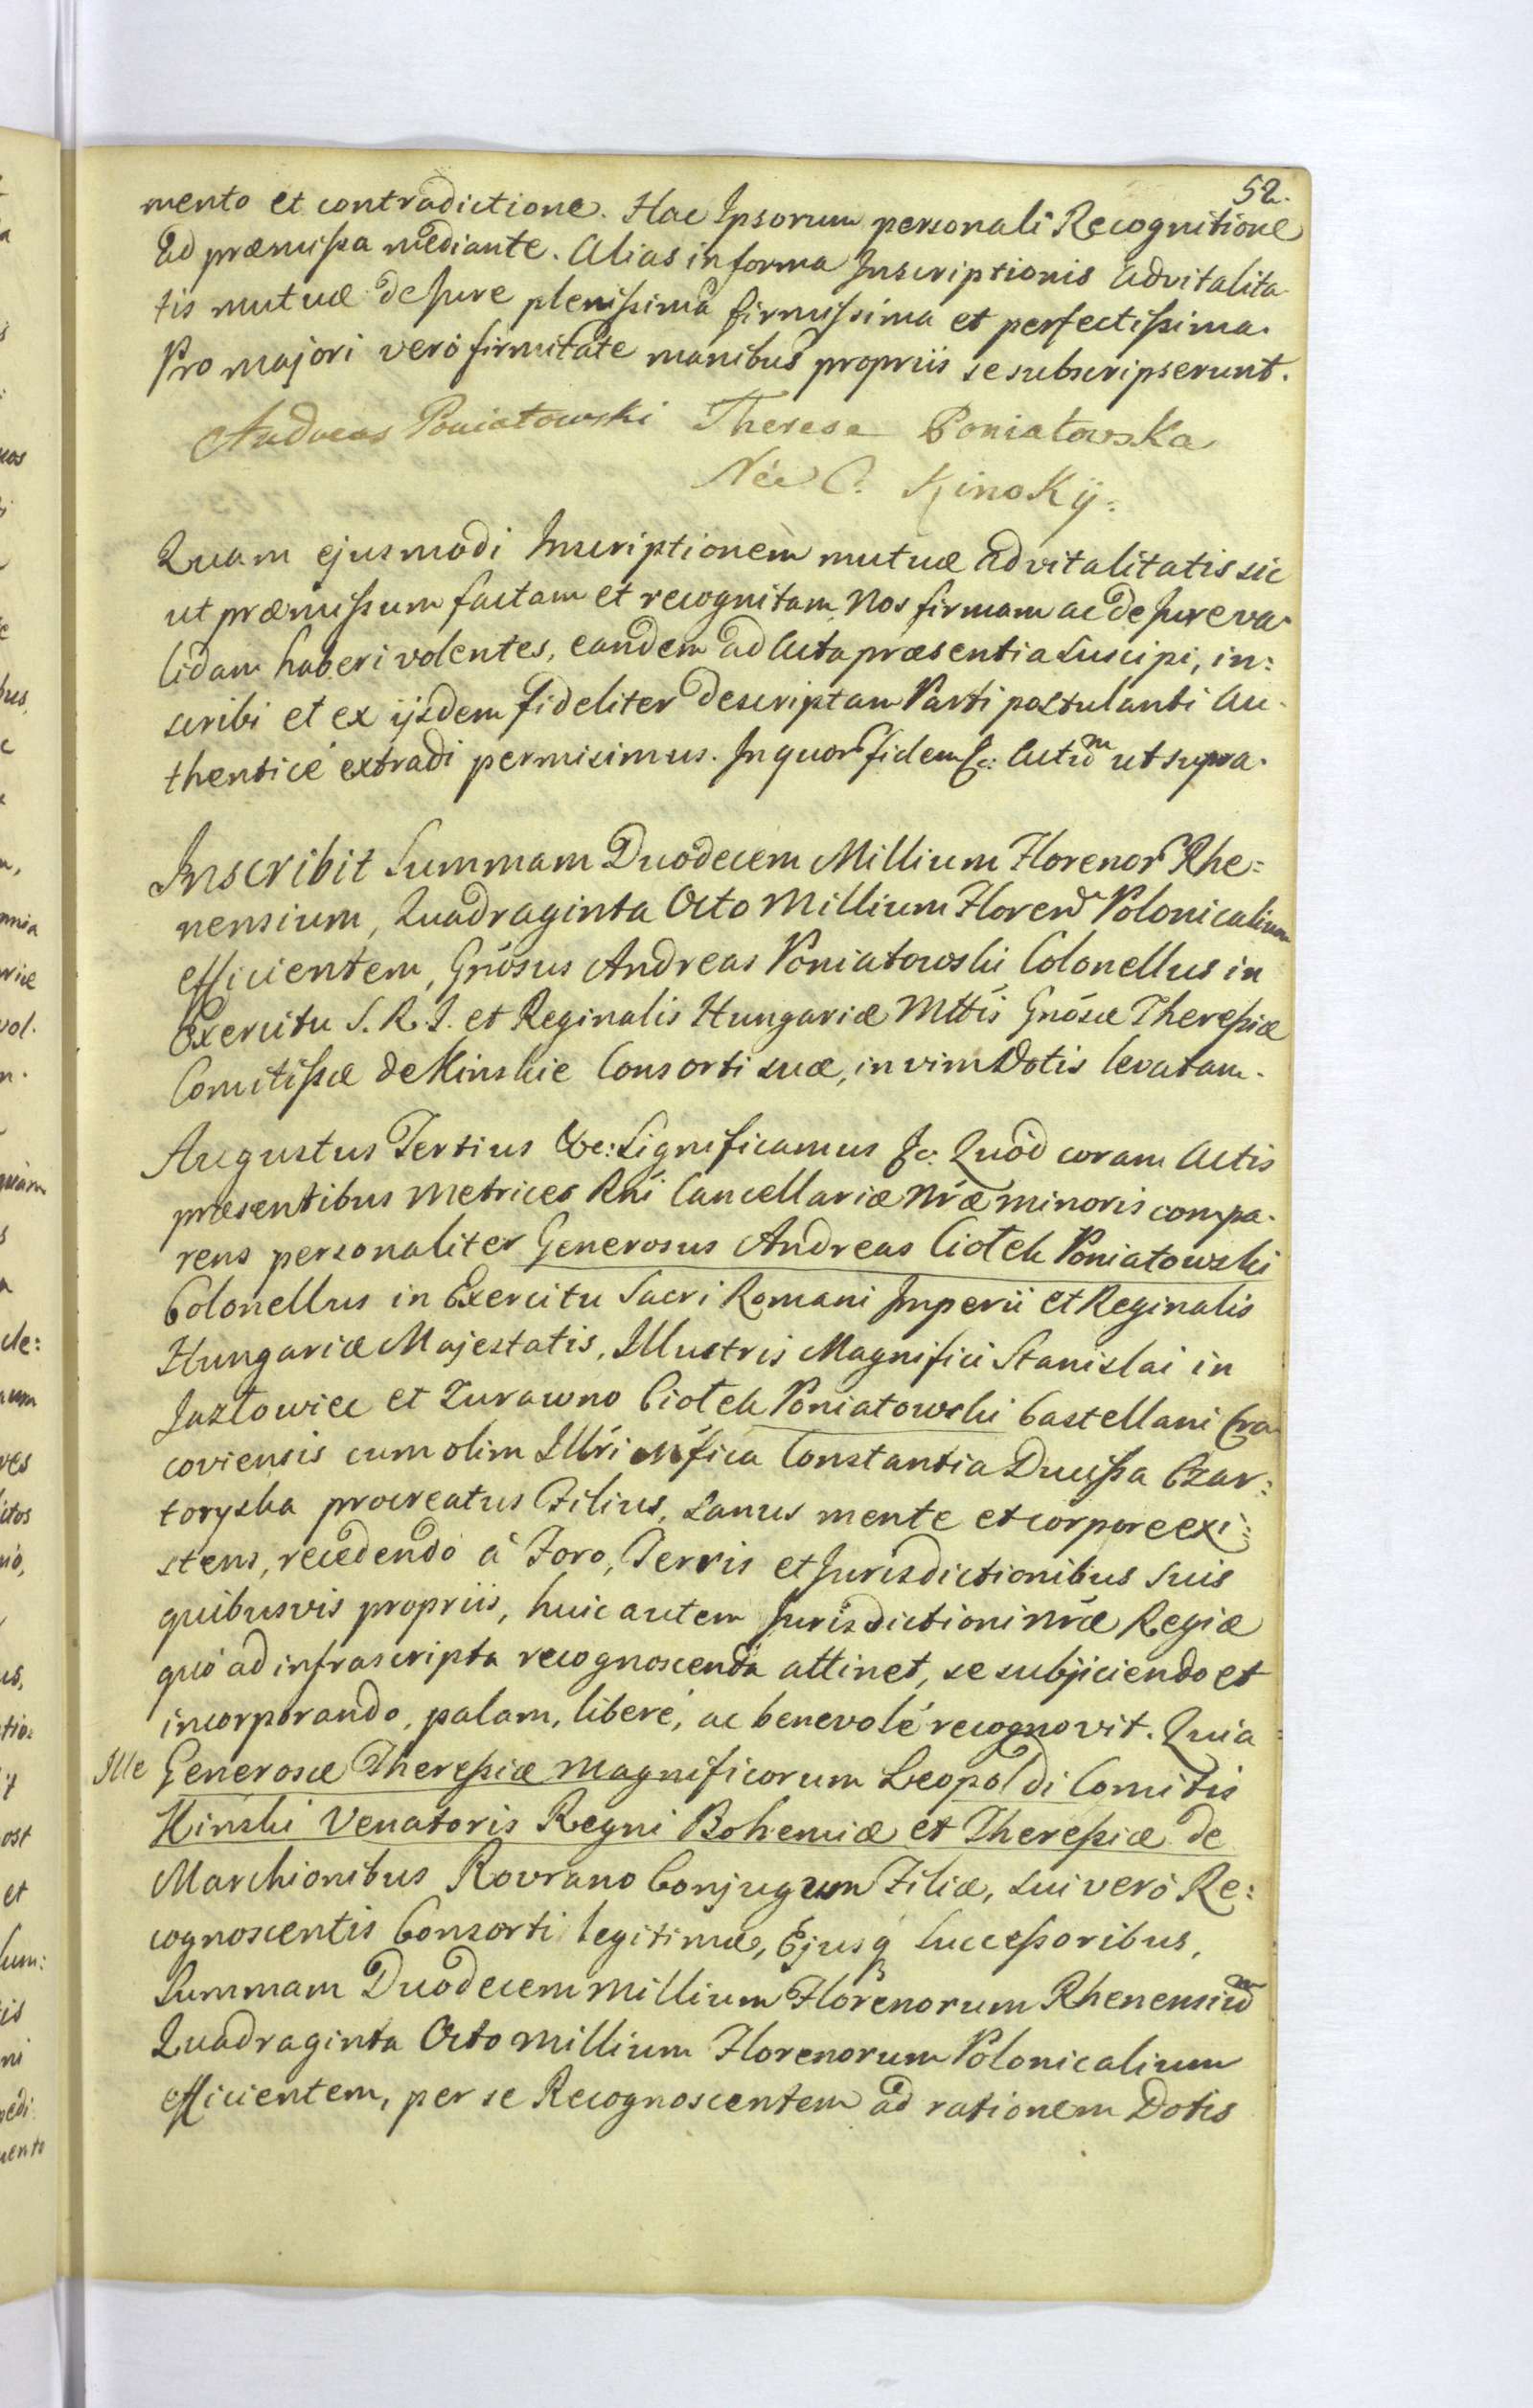 52.
mento et contradictione. Hac Ipsorum personali Recognitione
ad præmissa mediante. Alias in forma Inscriptionis advitalita-
tis mutuæ de Jure plenissima firmissima et perfectissima.
Pro majori verò firmitate manibus propriis se subscripserunt.
Andreas Poniatowski Therese Poniatowska
Née C. Kinsky:
Quam ejusmodi Inscriptionem mutuæ advitalitatis sic
ut præmissum factam et recognitam Nos firmam ac de Jure va-
lidam haberi volentes, eandem ad Acta præsentia suscipi, in:
scribi et ex ijsdem fideliter descriptam Parti postulanti Au-
thenticè extradi permisimus. In quor fidem &c: Actum ut supra.
Inscribit Summam Duodecem Millium Florenor Rhe=
nensium, Quadraginta Octo Millium Floren Polonicalium
efficientem, Gnósus Andreas Poniatowski Colonellus in
Exercitu S. R. I. et Reginalis Hungariæ Mttis Gnósæ Theresiæ
Comitissæ de Kinskie Consorti suæ, in vim Dotis levatam.
Augustus Tertius &c: Significamus &c: Quòd coram Actis
præsentibus Metrices Rni Cancellariæ Nræ minoris compa-
rens personaliter Generosus Andreas Ciołek Poniatowski
Colonellus in Exercitu Sacri Romani Imperii et Reginalis
Hungariæ Majestatis, Illustris Magnifici Stanislai in
Jazłowiec et Zurawno Ciołek Poniatowski Castellani Cra
coviensis cum olim Illri Mfica Constantia Ducissa Czar:
toryska procreatus Filius, sanus mente et corpore exi:
stens, recedendo à Foro, Terris et Jurisdictionibus suis
quibusvis propriis, huic autem Jurisdictioni Nræ Regiæ
quò ad infrascripta recognoscenda attinet, se subjiciendo et
incorporando, palam, liberè, ac benevolè recognovit. Quia
Ille Generosæ Theresiæ Magnificorum Leopoldi Comitis
Kinski Venatoris Regni Bohemiæ et Theresiæ de
Marchionibus Rovrano Conjugum Filiæ, sui verò Re:
cognoscentis Consorti legitimæ, Ejusq Successoribus,
Summam Duodecem Millium Florenorum Rhenensium
Quadraginta Octo Millium Florenorum Polonicalium
efficientem, per se Recognoscentem ad rationem Dotis